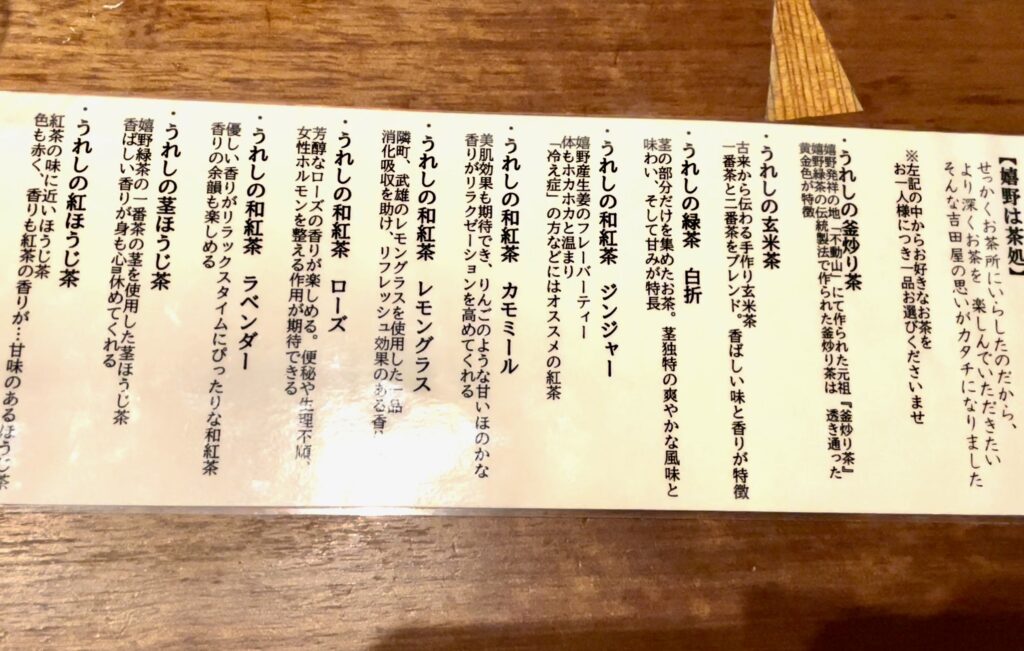 【嬉野は茶処】
せっかくお茶所にいらしたのだから、
より深くお茶を 楽しんでいただきたい
そんな吉田屋の思いがカタチになりました
※左記の中からお好きなお茶を
お一人様につき一品お選びくださいませ
・うれしの釜炒り茶
嬉野発祥の地「不動山」にて作られた元祖『釜炒り茶』
嬉野緑茶の伝統製法で作られた釜炒り茶は 透き通った
黄金色が特徴
・うれしの玄米茶
古来から伝わる手作り玄米茶
一番茶と二番茶をブレンド。香ばしい味と香りが特徴
・うれしの緑茶 白折
茎の部分だけを集めたお茶。茎独特の爽やかな風味と
味わい、そして甘みが特長
・うれしの和紅茶 ジンジャー
嬉野産生姜のフレーバーティー
体もホカホカと温まり
「冷え症」の方などにはオススメの紅茶
・うれしの和紅茶 カモミール
美肌効果も期待でき、りんごのような甘いほのかな
香りがリラクゼーションを高めてくれる
・うれしの和紅茶 レモングラス
隣町、武雄のレモングラスを使用した一品
消化吸収を助け、リフレッシュ効果のある香り
・うれしの和紅茶 ローズ
芳醇なローズの香りが楽しめる。便秘や生理不順、
女性ホルモンを整える作用が期待できる
・うれしの和紅茶 ラベンダー
優しい香りがリラックスタイムにぴったりな和紅茶
香りの余韻も楽しめる
・うれしの茎ほうじ茶
嬉野緑茶の一番茶の茎を使用した茎ほうじ茶
香ばしい香りが身も心も休めてくれる
・うれしの紅ほうじ茶
紅茶の味に近いほうじ茶
色も赤く、香りも紅茶の香りが…甘味のあるほうじ茶